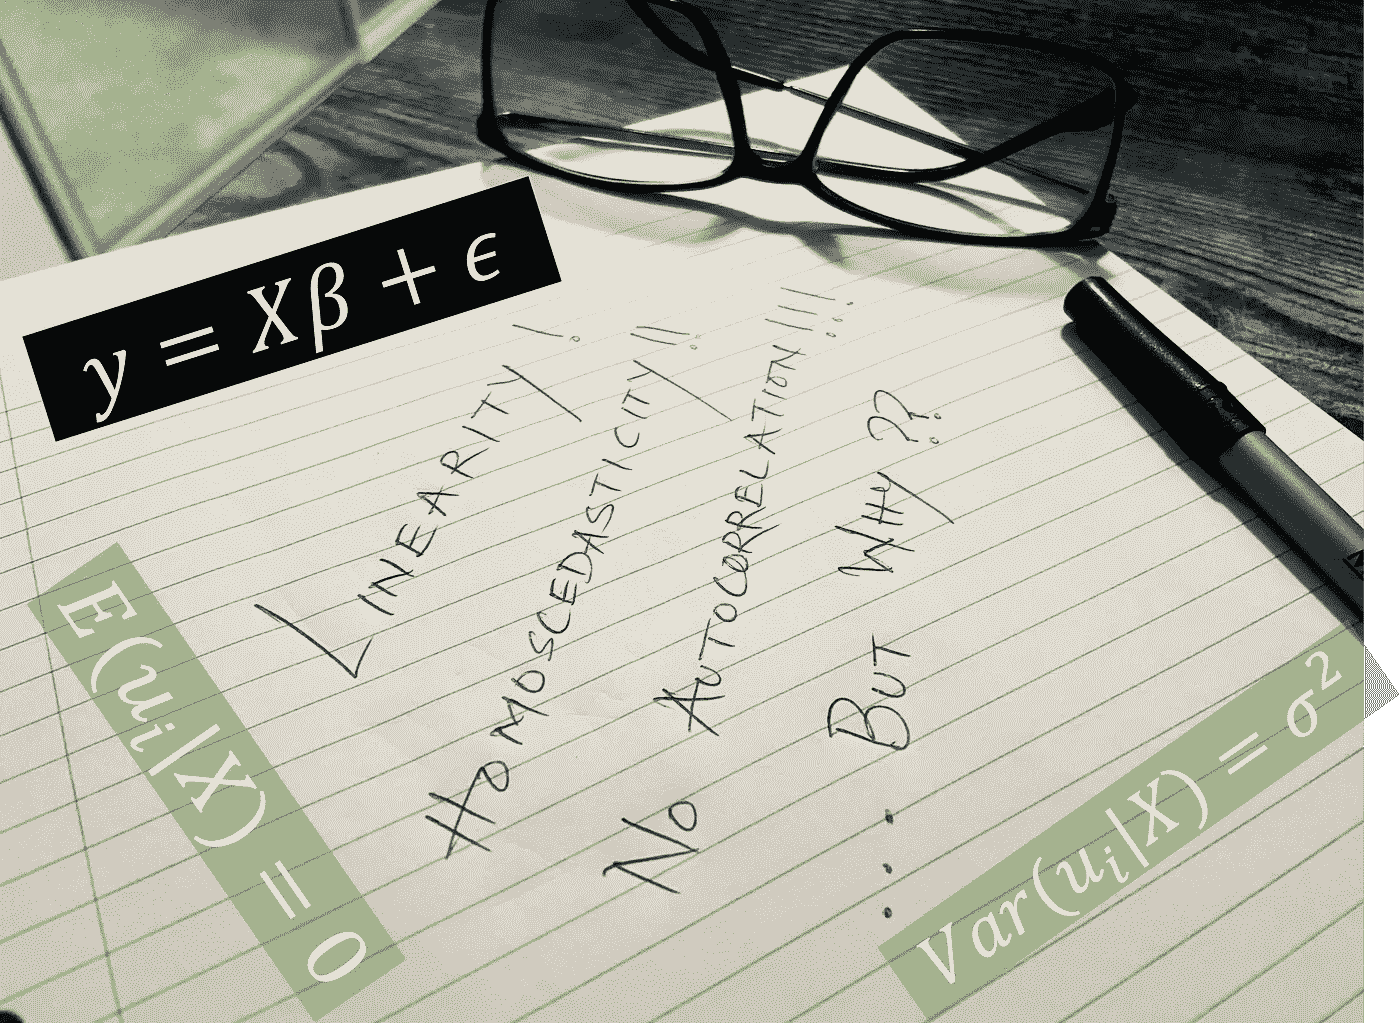 y = Xβ + ϵ
LINEARITY!
HOMOSCEDASTICITY!!
NO AUTOCORRELATION!!!
... BUT WHY??
E(uᵢ|X) = 0
Var(uᵢ|X) = σ²